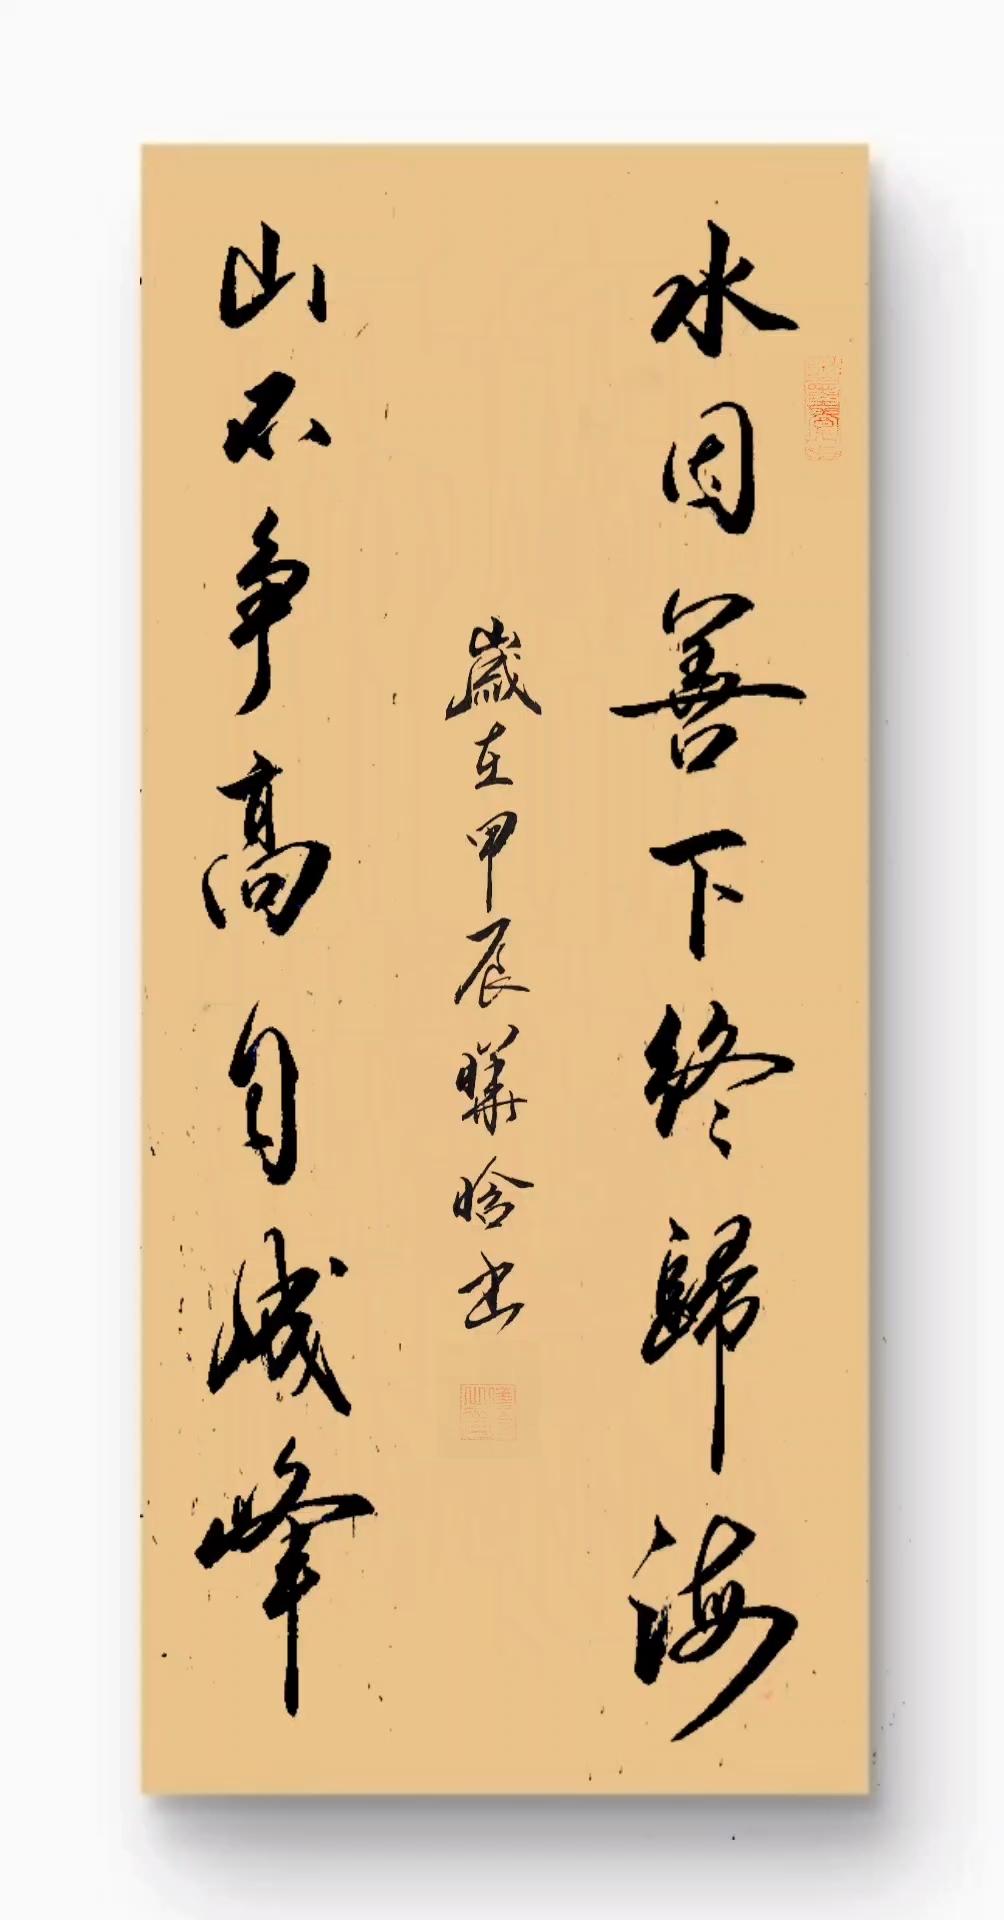 水因善下終歸海
山不争高自成峰
歲在甲辰曄晗書